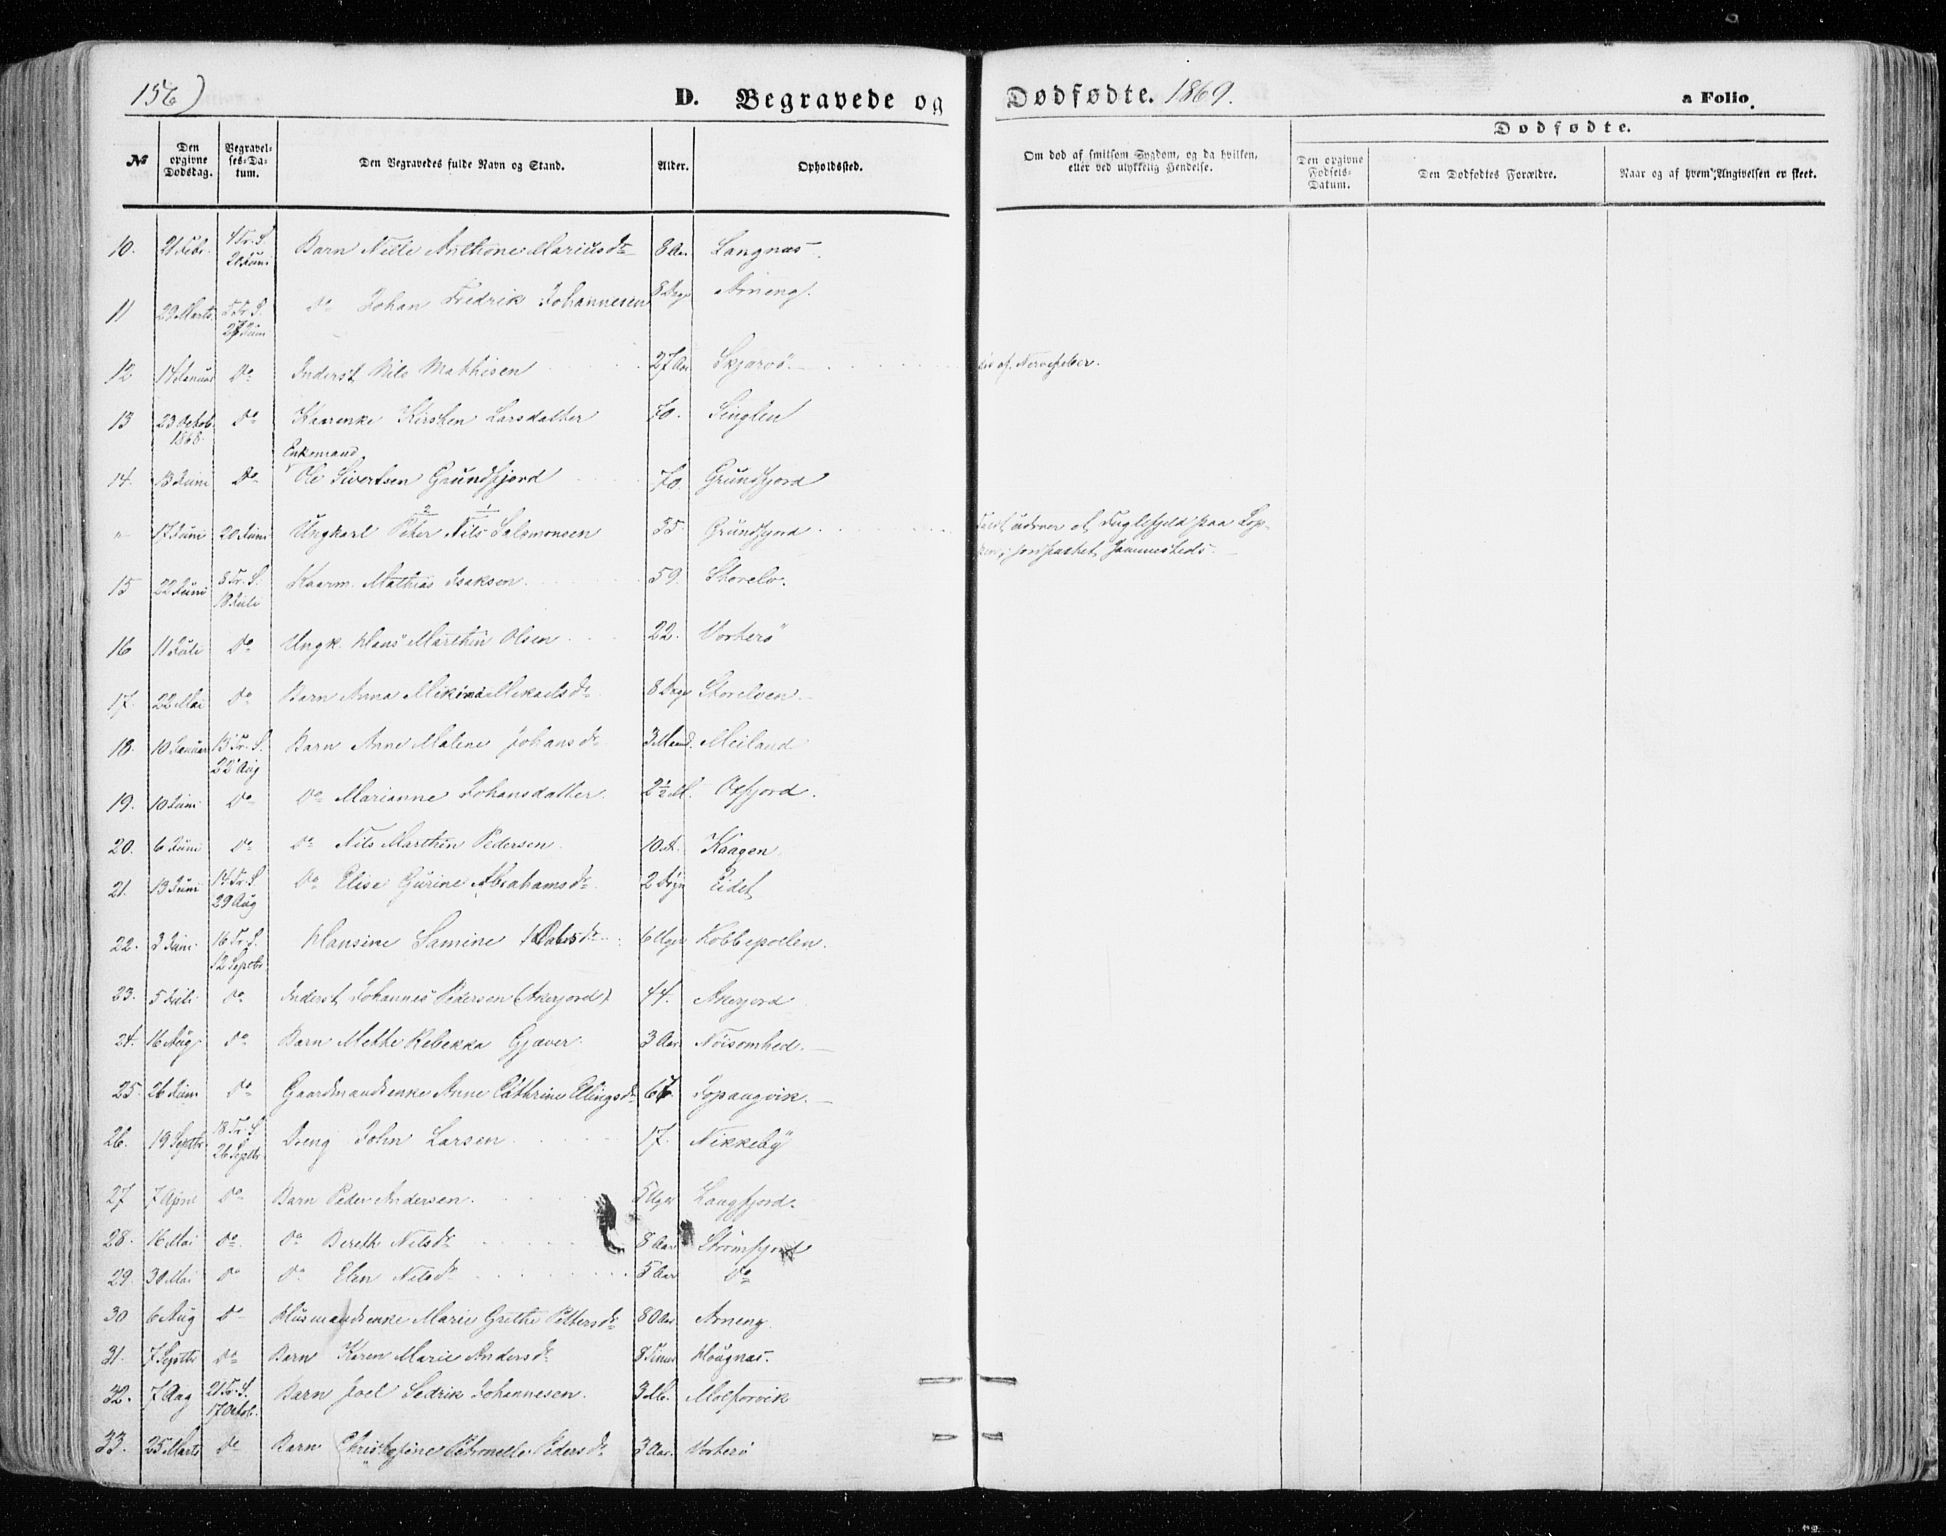 156)
D. Begravede og Dødfødte. 1869. a Folio.
№ Den opgivne Dødsdag. Begravelses-Datum. Den Begravedes fulde Navn og Stand. Alder. Opholdssted. Om død af smitsom Sygdom, og da hvilken, eller ved ulykkelig Hendelse. Dødfødte. Den opgivne Fødsels-Datum. Den Dødfødtes Forældre. Naar og af hvem Angivelsen er skeet.
10. 21 Febr. 4 Tr. S. 20 Juni Barn Nille Anthone Mariusdr 8 Aar Langnæs
11 29 Marts 5 Tr. S. 27 Juni do Johan Fredrik Johannesen 8 Dage Arneng.
12 14 Januar Do Inderst Nils Mathisen 27 Aar Skjærvö. af Nervefeber.
13 23 Octob. 1868. Do Kirsten Larsdatter 70. Singlen
14. 13 Juni Do Enkemand Ole Sivertsen Grundfjord 70. Grundfjord
" 17 Juni 20 Juni Ungkarl Peter (2) Nils (1) Salomonsen 35. Grundfjord udover et Fuglefjeld paa Lop-
pen, jordfæstet sammesteds.
15 22 Juni 8 Tr. S. 18 Juli Mathias Isaksen 59. Storelv.
16 11 Juli Do Ungk. Hans Marthin Olsen 22. Vorterö
17. 22 Mai Do Barn Anna Mikaelsdr 8 Dage Storelven
18. 10 Januar 13 Tr. S. 22 Aug Barn Anne Malene Johansdr 3 Maned. Meiland
19. 10 Juni Do Do Marianne Johansdatter 2½ M. Oxfjord.
20. 6 Juni Do Do Nils Marthin Pedersen 10 Kaagen
21. 13 Juni 14 Tr. S. 29 Aug Do Elise Gurine Abrahamsdr 2 Døgn Eidet
22. 3 Juni 16 Tr. S. 12 Septbr Hansine Samine 6 Uger Kobbepollen.
23. 5 Juli Do Inderst Johannes Pedersen (Akerjord) 44. Akerjord
24. 16 Aug Do Barn Mette Rebekka Gjæver 3 Aar Nöisomhed.
25. 26 Juni Do Gaardmandsenke Anne Cathrine Ellingsdr 67 Topangvik.
26. 19 Septbr 18 Tr. S. 26 Septbr Dreng John Larsen 17. Nikkeby
27 7 April Do Barn Peder Andersen. 5 Uger Langfjord.
28. 16 Mai Do Do Bereth Nilsdr 8 Aar Strömfjord
29. 30 Mai Do Do Elen Nilsdr 5 Aar Do
30 6 Aug Do Husmandsenke Marie Grethe Pettersdr 80 Aar Arneng
31. 7 Septbr Do Barn Karen Marie Andersdr 8 Timer Hougnæs.
32. 7 Aug 21 Tr. S. 17 Octob. Barn Joel Sedrik Johannesen. 3 M. Molforvik
33. 25 Marts Do Barn Petronelle Pedersdr 3 Aar. Vorterö